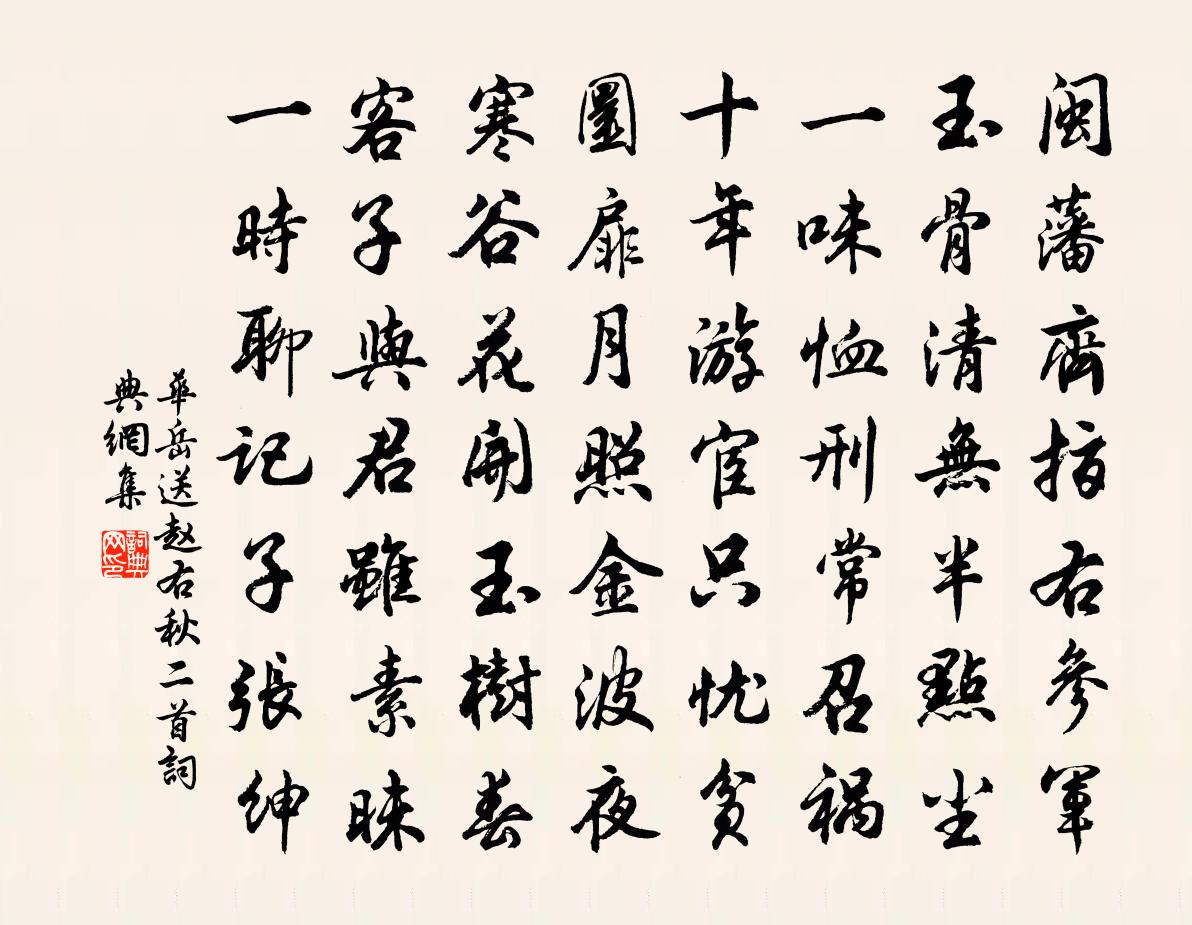 闽藩齊指右參軍
玉骨清無半點尘
一味恤刑常召禍
十年游宦只忧貧
圜扉月照金波夜
寒谷花開玉樹春
客子與君雖素昧
一時聊記子張紳
華岳送赵右秋二首詞
典網集
詞典網印